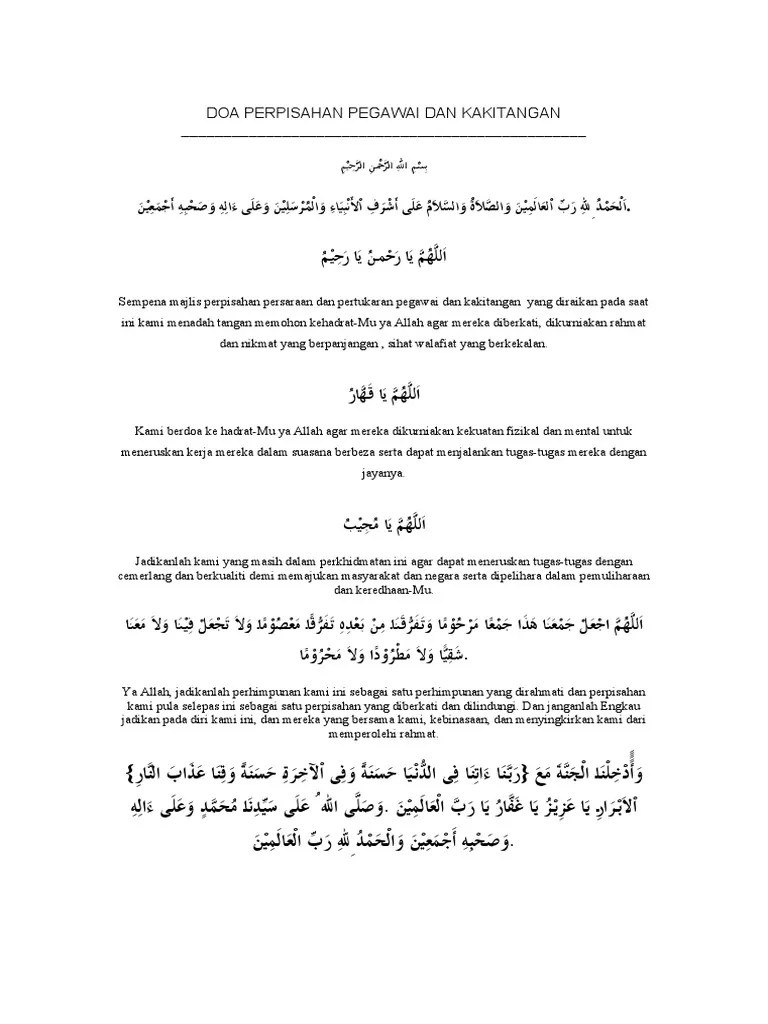 DOA PERPISAHAN PEGAWAI DAN KAKITANGAN
بِسْمِ اللهِ الرَّحْمنِ الرَّحِيْمِ
اَلْحَمْدُ ِللهِ رَبِّ اْلعَالَمِيْنَ وَالصَّلاَةُ وَالسَّلاَمُ عَلَى أَشْرَفِ اْلأَنْبِيَاءِ وَالْمُرْسَلِيْنَ وَعَلَى ءَالِهِ وَصَحْبِهِ أَجْمَعِيْنَ.
اَللَّهُمَّ يَا رَحْمنُ يَا رَحِيْمُ
Sempena majlis perpisahan persaraan dan pertukaran pegawai dan kakitangan yang diraikan pada saat
ini kami menadah tangan memohon kehadrat-Mu ya Allah agar mereka diberkati, dikurniakan rahmat
dan nikmat yang berpanjangan , sihat walafiat yang berkekalan.
اَللَّهُمَّ يَا قَهَّارُ
Kami berdoa ke hadrat-Mu ya Allah agar mereka dikurniakan kekuatan fizikal dan mental untuk
meneruskan kerja mereka dalam suasana berbeza serta dapat menjalankan tugas-tugas mereka dengan
jayanya.
اَللَّهُمَّ يَا مُجِيْبُ
Jadikanlah kami yang masih dalam perkhidmatan ini agar dapat meneruskan tugas-tugas dengan
cemerlang dan berkualiti demi memajukan masyarakat dan negara serta dipelihara dalam pemuliharaan
dan keredhaan-Mu.
اَللَّهُمَّ اجْعَلْ جَمْعَنَا هَذَا جَمْعًا مَرْحُوْمًا وَتَفَرُّقَنَا مِنْ بَعْدِهِ تَفَرُّقًا مَعْصُوْمًا وَلاَ تَجْعَلْ فِيْنَا وَلاَ مَعَنَا
شَقِيًّا وَلاَ مَطْرُوْدًا وَلاَ مَحْرُوْمًا.
Ya Allah, jadikanlah perhimpunan kami ini sebagai satu perhimpunan yang dirahmati dan perpisahan
kami pula selepas ini sebagai satu perpisahan yang diberkati dan dilindungi. Dan janganlah Engkau
jadikan pada diri kami ini, dan mereka yang bersama kami, kebinasaan, dan menyingkirkan kami dari
memperolehi rahmat.
وَأَدْخِلْنَا الْجَنَّةَ مَعَ {رَبَّنَا ءَاتِنَا فِى الدُّنْيَا حَسَنَةً وَفِى اْلآخِرَةِ حَسَنَةً وَقِنَا عَذَابَ النَّارِ}
اْلأَبْرَارِ يَا عَزِيْزُ يَا غَفَّارُ يَا رَبَّ الْعَالَمِيْنَ. وَصَلَّى اللهُ عَلَى سَيِّدِنَا مُحَمَّدٍ وَعَلَى ءَالِهِ
وَصَحْبِهِ أَجْمَعِيْنَ وَالْحَمْدُ ِللهِ رَبِّ الْعَالَمِيْنَ.